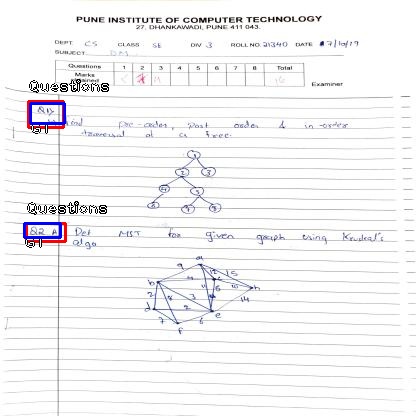 PUNE INSTITUTE OF COMPUTER TECHNOLOGY
27, DHANKAWADI, PUNE 411 043.
DEPT. CS CLASS SE DIV 3 ROLL NO. 21340 DATE 17/10/19
SUBJECT DM
Questions 1 2 3 4 5 6 7 8 Total
Marks
Examiner
Questions
Q1)
GT
pre-order, post order & in-order
traversal of a tree.
1
2 3
4 5
6 7 8
Questions
Q2 A
GT
Det MST for given graph using Krudral's
algo
a
9 12 15
b c h
14
2 8 3
d 2 e
7 6
f